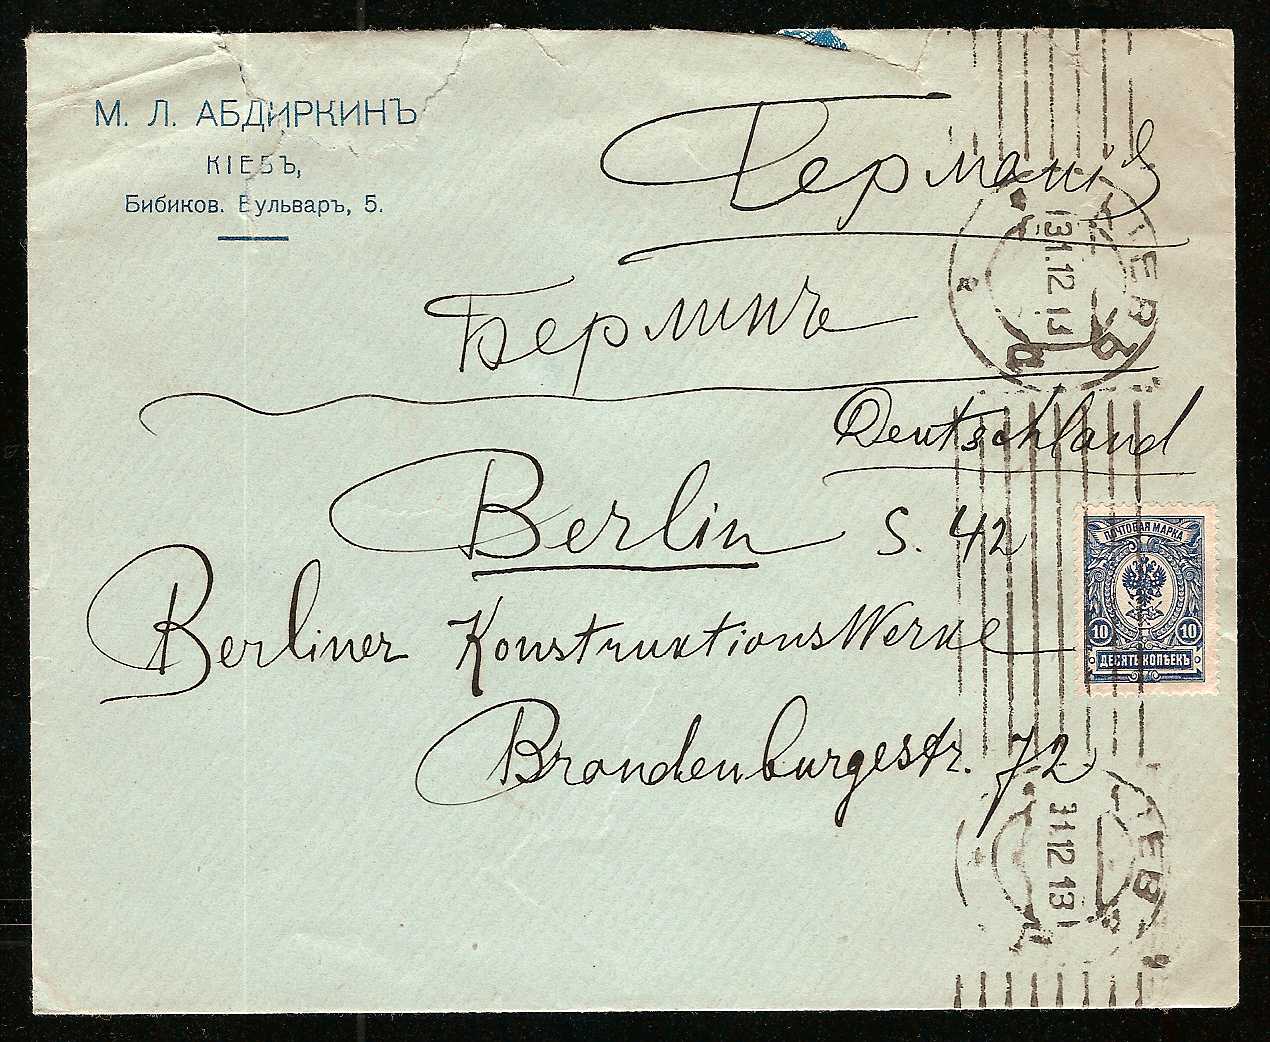 М. Л. АБДИРКИНЪ
КІЕВЪ,
Бибиков. Бульваръ, 5.
Германія
Берлинъ
Deutschland
Berlin S. 42
Berliner KonstruktionsWerke
Brandenburgestr. 72
ПОЧТОВАЯ МАРКА
10 10
ДЕСЯТЬ КОПѢЕКЪ
КІЕВЪ
31.12 13
КІЕВЪ
31.12 13